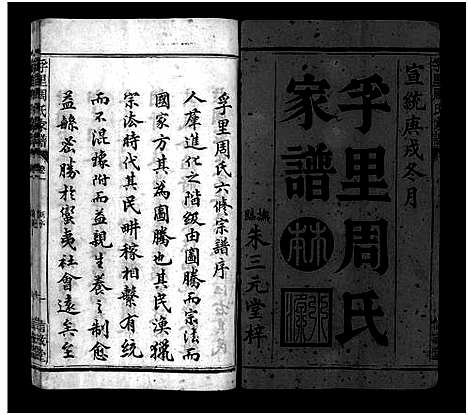 宣統庚戌冬月
孚里周氏
家譜
朱三元堂梓
孚里周氏六修宗譜序
人羣進化之階級由圖騰而宗法而
國家方其為圖騰也其民漁獵
宗法時代其民耕稼相繫有統
而不混豫附而益親生養之制愈
益緜密勝於蠻夷社會遠矣至